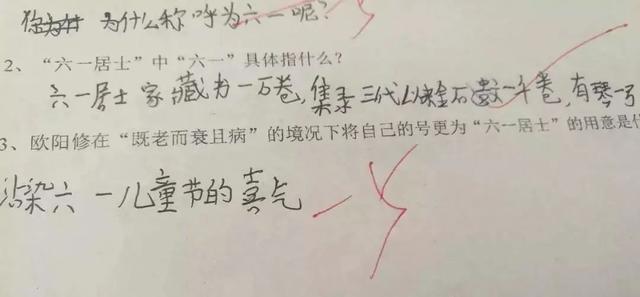 为什么称呼为六一呢?
2、“六一居士”中“六一”具体指什么?
六一居士家藏书一万卷,集录三代以来金石遗一千卷,有琴一
3、欧阳修在“既老而衰且病”的境况下将自己的号更为“六一居士”的用意是什
沾染六一儿童节的喜气